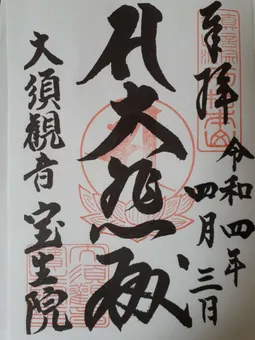 奉拝
令和四年
四月三日
大悲殿
大須觀音 宝生院